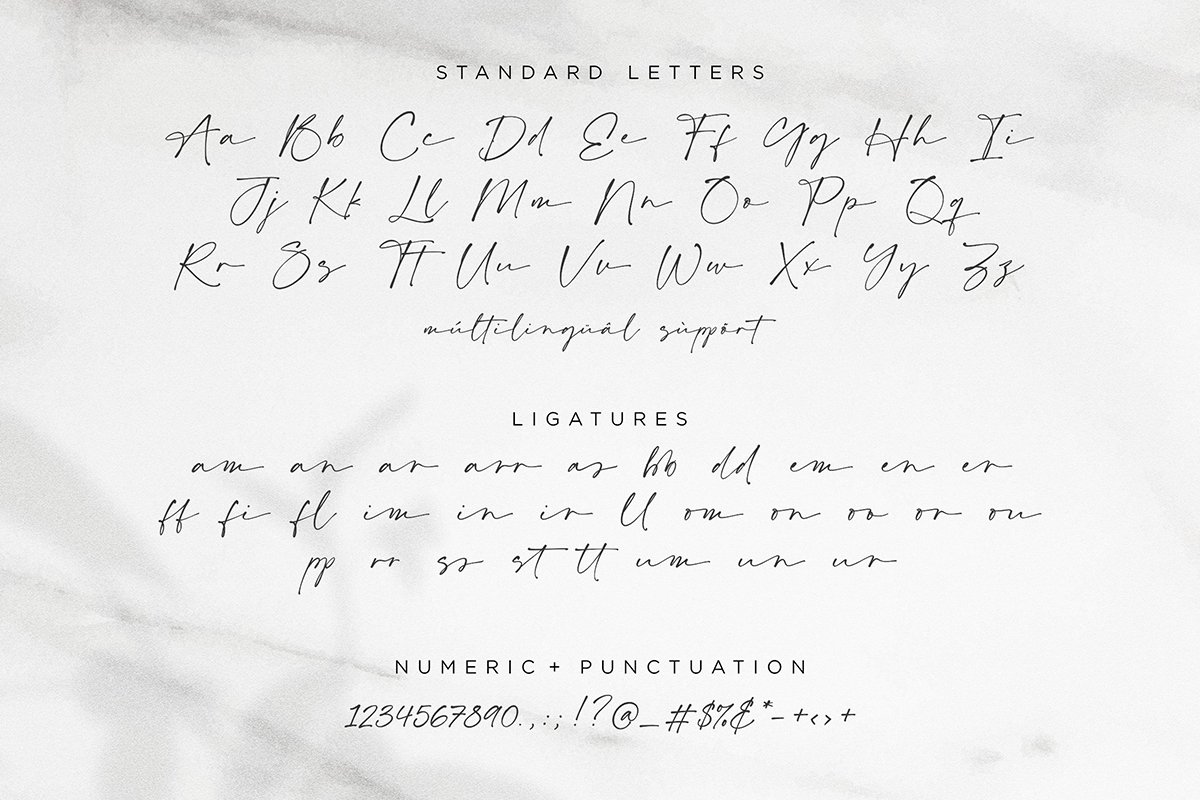 STANDARD LETTERS
Aa Bb Cc Dd Ee Ff Gg Hh Ii
Jj Kk Ll Mm Nn Oo Pp Qq
Rr Ss Tt Uu Vv Ww Xx Yy Zz
múltilingüâl sùppórt
LIGATURES
am an ar arr as bb dd em en er
ff fi fl im in ir ll om on oo or ou
pp rr ss st tt um un ur
NUMERIC + PUNCTUATION
1234567890.,:;!?@_#$%&*-+<>+